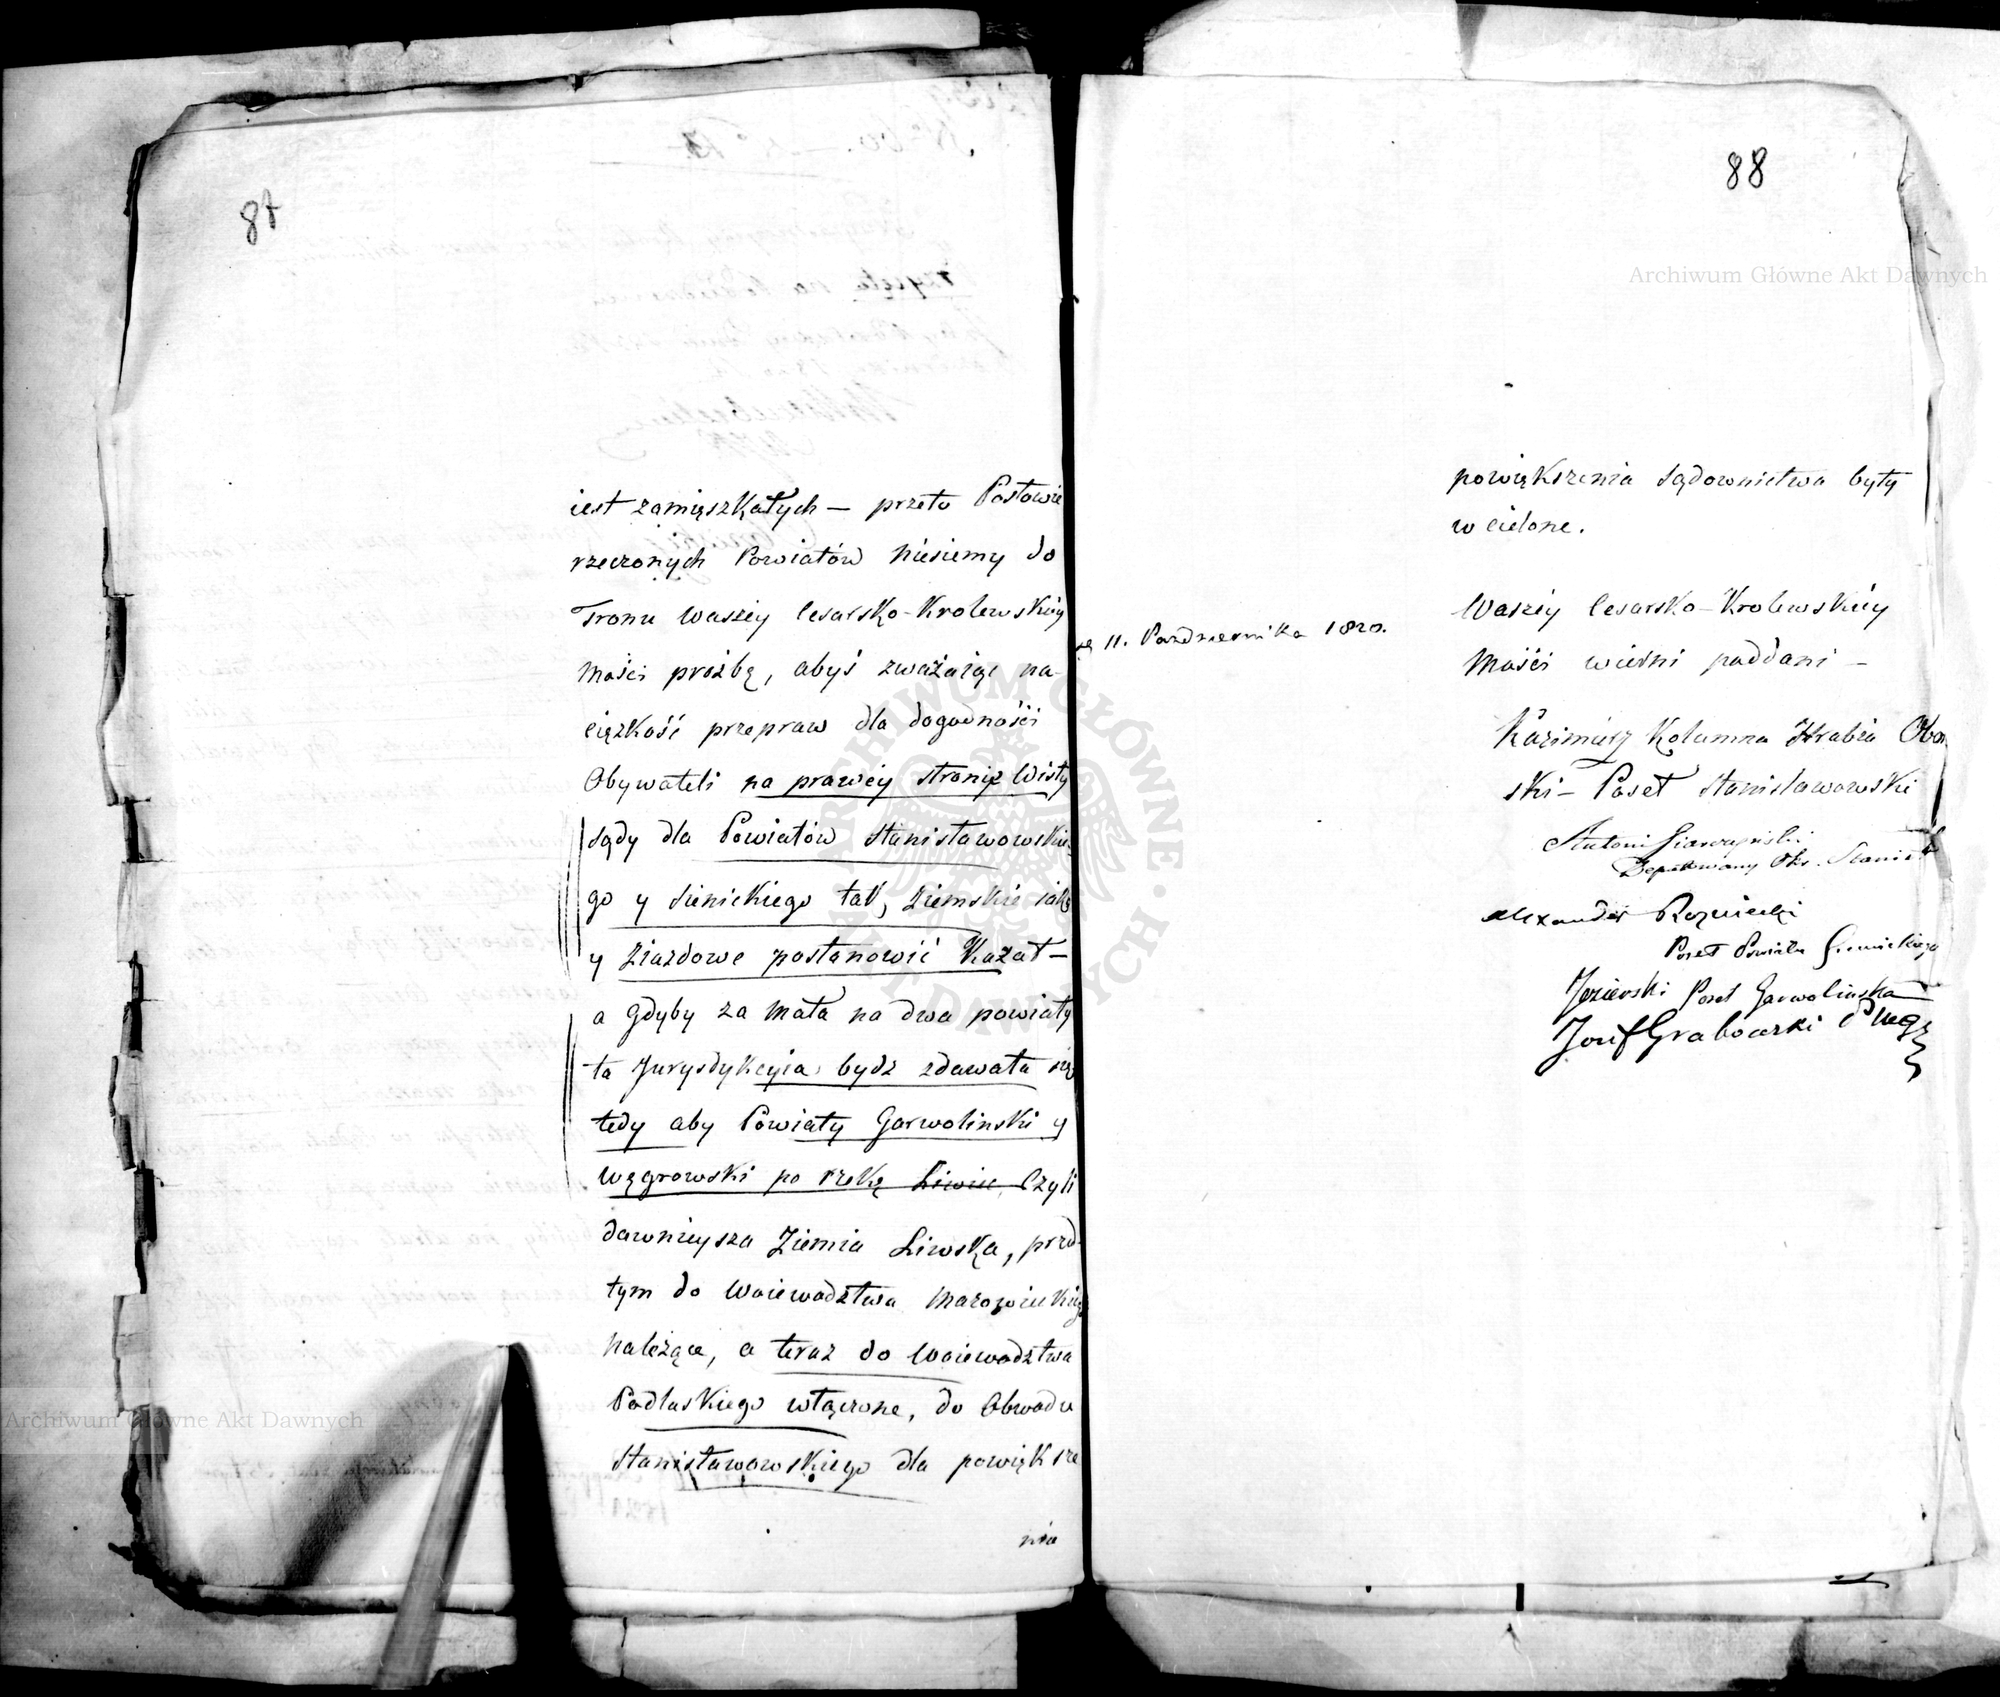 87
iest zamięszkałych — przeto Posłowie
rzeczonych Powiatów niesiemy do
Tronu Waszey Cesarsko-Krolewskiey
Mości prożbę, abyś zważaiąc na
ciężkość przepraw dla dogodności
Obywateli na prawey stronie Wisły
sądy dla Powiatów Stanisławowskie-
go y Sienickiego tak, Ziemskie iako
y Ziazdowe postanowić Kazał —
a gdyby za mała na dwa powiaty
ta Jurysdykcyia bydz zdawała się
tedy aby Powiaty Garwolinski y
Węgrowski po rzekę Liwiec czyli
dawnieysza Ziemia Liwska, przed-
tym do Woiewodztwa Mazowieckiego
należące, a teraz do Woiewodztwa
Podlaskiego włączone, do Obwodu
Stanisławowskiego dla powiększe
nia
88
Archiwum Główne Akt Dawnych
powiększenia sądownictwa były
wcielone.
11. Pazdziernika 1820.
Waszey Cesarsko-Krolewskiey
Mości wierni poddani —
Kazimierz Kolumna Hrabia
ski — Poseł Stanisławowski
Antoni
Deputowany Okr.
Alexander Rożniecki
Poseł Powiatu Sienickiego
Jezierski Poseł Garwolinski
Jozef Grabowski
Archiwum Główne Akt Dawnych
ARCHIWUM GŁÓWNE AKT DAWNYCH